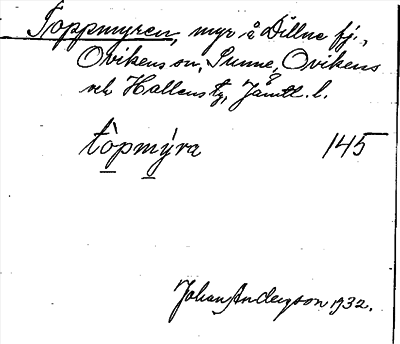 Toppmyren, myr å Dillne fj.,
Ovikens sn, Sunne, Ovikens
och Hallens tg, Jämtl. l.
tòpmýra 145
Johan Anderson 1932.